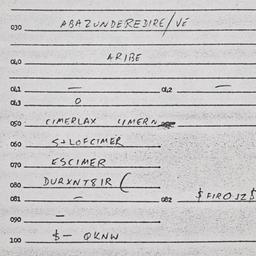 030 ABAZUNDEREDIRE/VÉ
040 ARIBE
041 — 042 —
043 0
050 CIMERLAX
060 S+LOFCIMER
070 ESCIMER
080 DURXNT8IR (
081 — 082 $FIROJZ$
090 —
100 $— QKNW